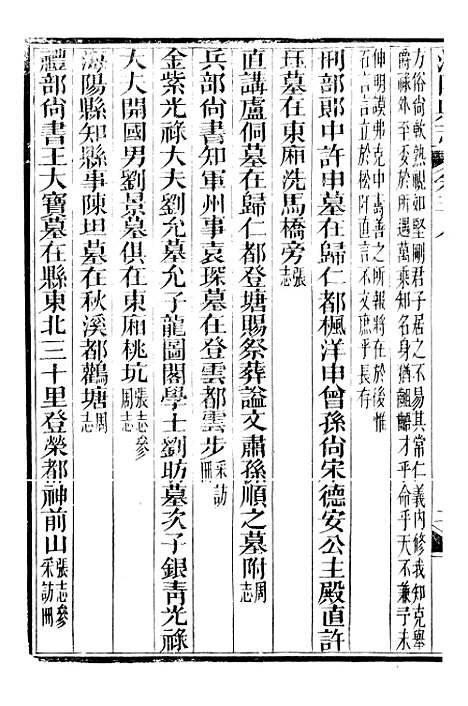 方俗尚軟熟視如堅剛君子居之不易其常仁義內修我知克舉
爵祿外至委於所遇萬乘知名身猶齟齬才乎命乎天不兼予未
伸明謨弗克中壽善之所報將在於後惟
石言言於松阡直言不文庶乎長存
刑部郎中許申墓在歸仁都楓洋申曾孫尚宋德安公主殿直許
珏墓在東廂洗馬橋旁張志
直講盧侗墓在歸仁都登塘賜祭葬謚文肅孫順之墓附周志
兵部尚書知軍州事袁琛墓在登雲都雲步采訪冊
金紫光祿大夫劉允墓允子龍圖閣學士劉昉墓次子銀青光祿
大夫開國男劉景墓俱在東廂桃坑張志參周志
海陽縣知縣事陳坦墓在秋溪都鸛塘周志
禮部尚書王大寶墓在縣東北三十里登榮都神前山張志參采訪冊